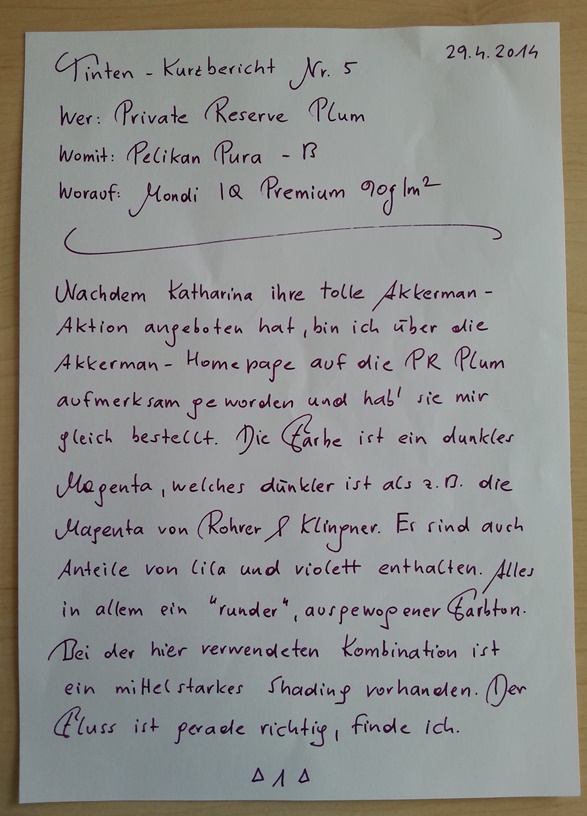 29.4.2014
Tinten - Kurzbericht Nr. 5
Wer: Private Reserve Plum
Womit: Pelikan Pura - B
Worauf: Mondi IQ Premium 90g/m²
Nachdem Katharina ihre tolle Akkerman-
Aktion angeboten hat, bin ich über die
Akkerman-Homepage auf die PR Plum
aufmerksam geworden und hab' sie mir
gleich bestellt. Die Farbe ist ein dunkles
Magenta, welches dunkler ist als z.B. die
Magenta von Rohrer & Klingner. Es sind auch
Anteile von lila und violett enthalten. Alles
in allem ein "runder", ausgewogener Farbton.
Bei der hier verwendeten Kombination ist
ein mittelstarkes Shading vorhanden. Der
Fluss ist gerade richtig, finde ich.
Δ 1 Δ